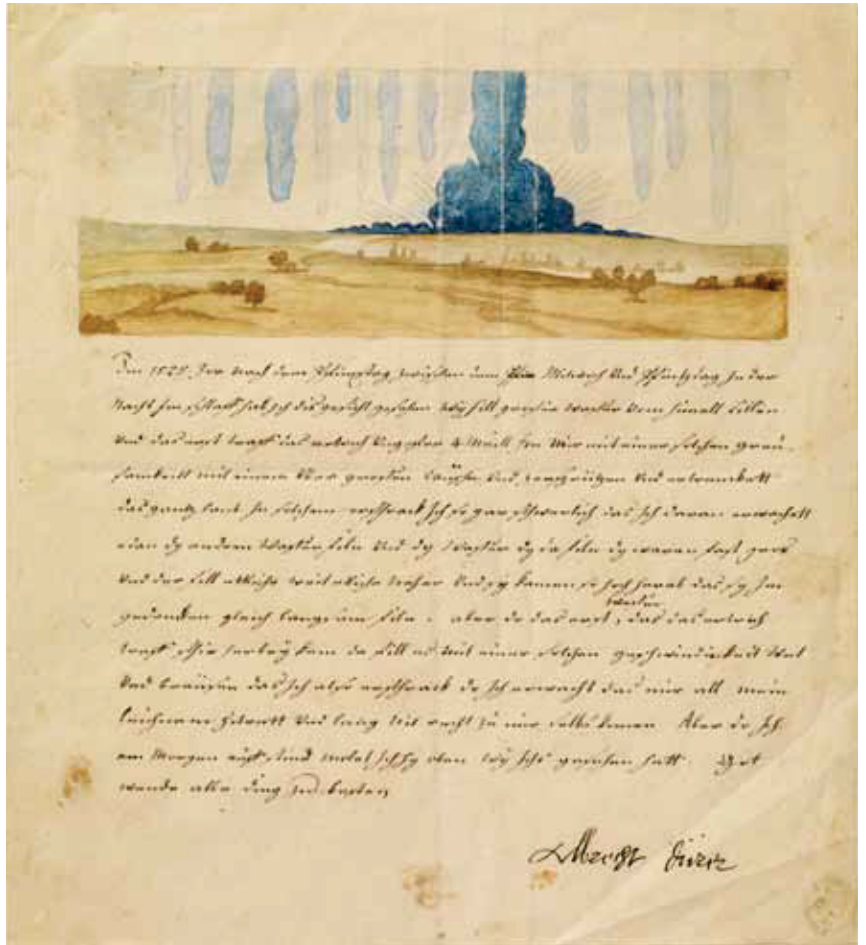 Im 1525 Jor Nach dem Pfingstag zwischen dem Mitwoch Und Pfintztag In der
Nacht Im schlaff hab ich dis gesicht gesehen wy fill grosser wasser Vom himell fillen
Und das erst traff das ertrich Ungefer 4 Meill fon Mir mit einer solchen grau-
samkeitt mit einem Uber grossen rauschn Und zersprützen Und ertrenckett
das gantz lant In solchem erschrack Ich so gar schwerlich das ich daran erwachett
edan dy andern Wasser filn Und dy Wasser dy da filn dy waren fast gros
Und der fill etliche weit etliche neher Und sy kamen so hoch herab das sy Im
gedancken gleich langsam filn. aber do das erst wasser, das das ertrich
traff schir herbey kam do fill es Mit einer solchen geschwindickeit Wint
Und brausen das Ich also erschrack do Ich erwacht das mir all mein
leichnam zitrett Und lang Nit recht zu mir selbs Aber do Ich
am Morgen auff stund molet Ich hy oben wy Ichs gesehen hatt. Got
wende alle ding zu besten
Albrecht Dürer